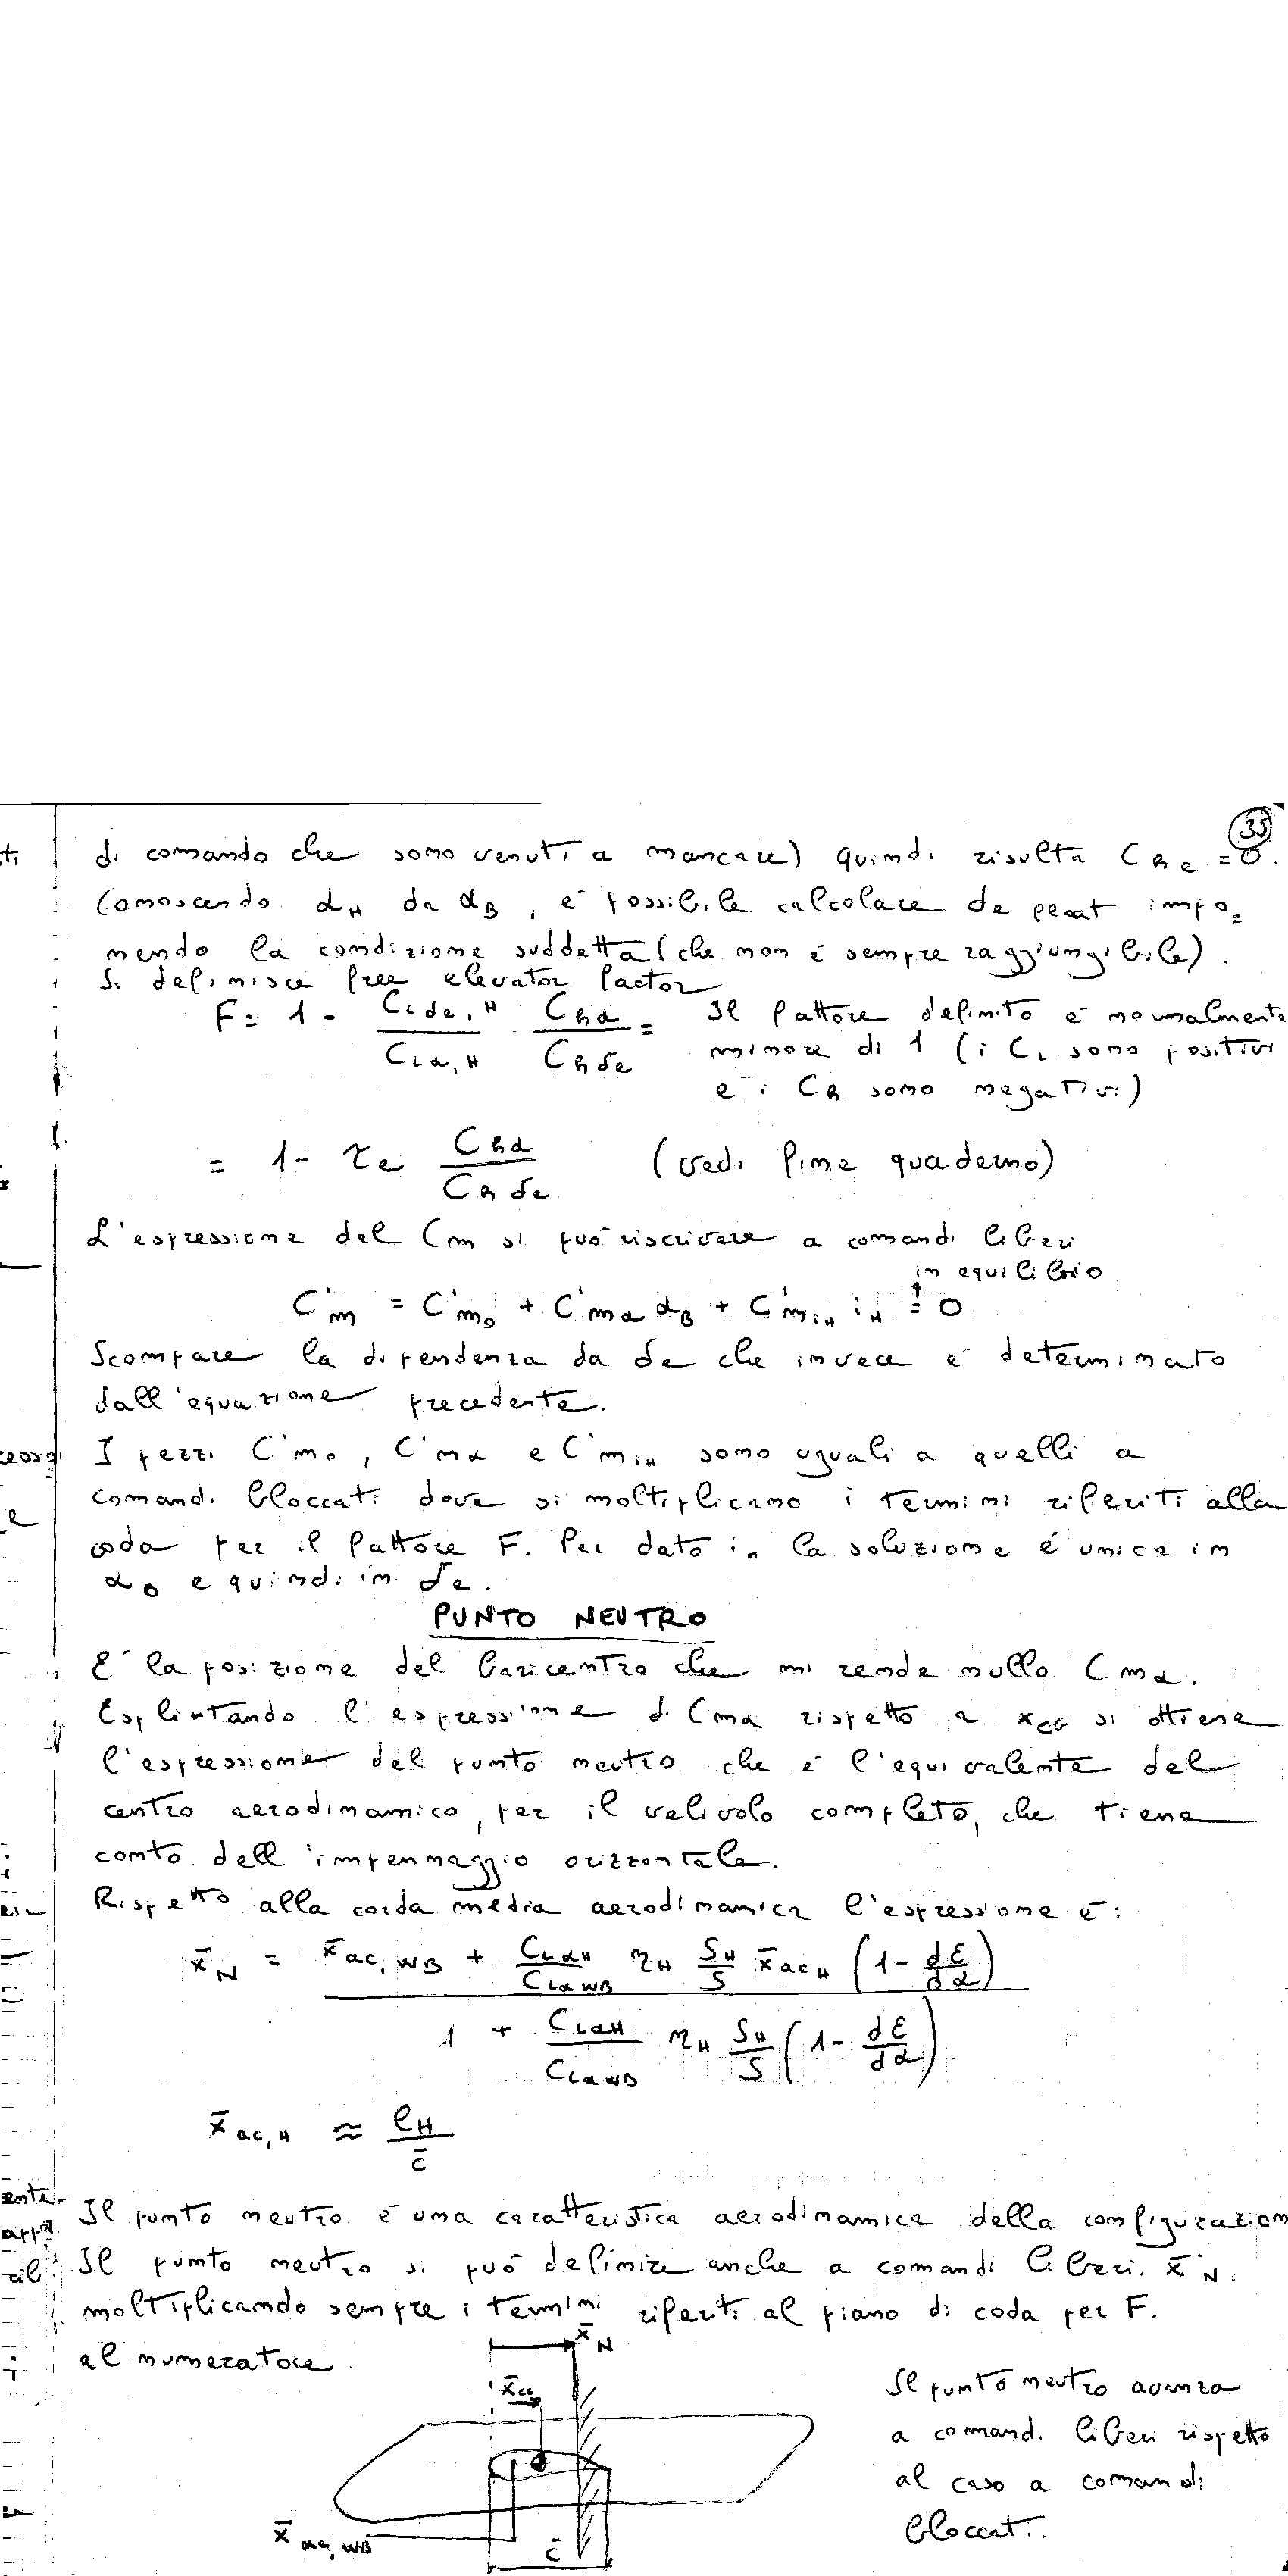 35
di comando che sono venuti a mancare) quindi risulta C_he = 0.
Conoscendo α_H da α_B, è possibile calcolare δe impo=
nendo la condizione suddetta (che non è sempre raggiungibile).
Si definisce free elevator factor
F = 1 - C_Lδe,H / C_Lα,H · C_hα / C_hδe =
Il fattore definito è normalmente
minore di 1 (i C_L sono positivi
e i C_h sono negativi)
= 1 - τe C_hα / C_hδe (vedi fine quaderno)
L'espressione del Cm si può riscrivere a comandi liberi
in equilibrio
C'm = C'm0 + C'mα α_B + C'm_iH i_H = 0
Scompare la dipendenza da δe che invece è determinato
dall'equazione precedente.
I pezzi C'm0, C'mα e C'm_iH sono uguali a quelli a
comandi bloccati dove si moltiplicano i termini riferiti alla
coda per il fattore F. Per dato i_H la soluzione è unica in
α_B e quindi in δe.
PUNTO NEUTRO
È la posizione del baricentro che mi rende nullo Cmα.
Esplicitando l'espressione di Cmα rispetto a x_CG si ottiene
l'espressione del punto neutro che è l'equivalente del
centro aerodinamico, per il velivolo completo, che tiene
conto dell'impennaggio orizzontale.
Rispetto alla corda media aerodinamica l'espressione è:
x̄_N = x̄_ac,WB + C_LαH / C_LαWB η_H S_H / S x̄_acH (1 - dε / dα)
1 + C_LαH / C_LαWB η_H S_H / S (1 - dε / dα)
x̄_ac,H ≈ ℓ_H / c̄
Il punto neutro è una caratteristica aerodinamica della configurazion
Il punto neutro si può definire anche a comandi liberi. x̄'_N.
moltiplicando sempre i termini riferiti al piano di coda per F.
al numeratore.
x̄_N
x̄_CG
x̄_ac,WB
c̄
Il punto neutro avanza
a comandi liberi rispetto
al caso a comandi
bloccati.